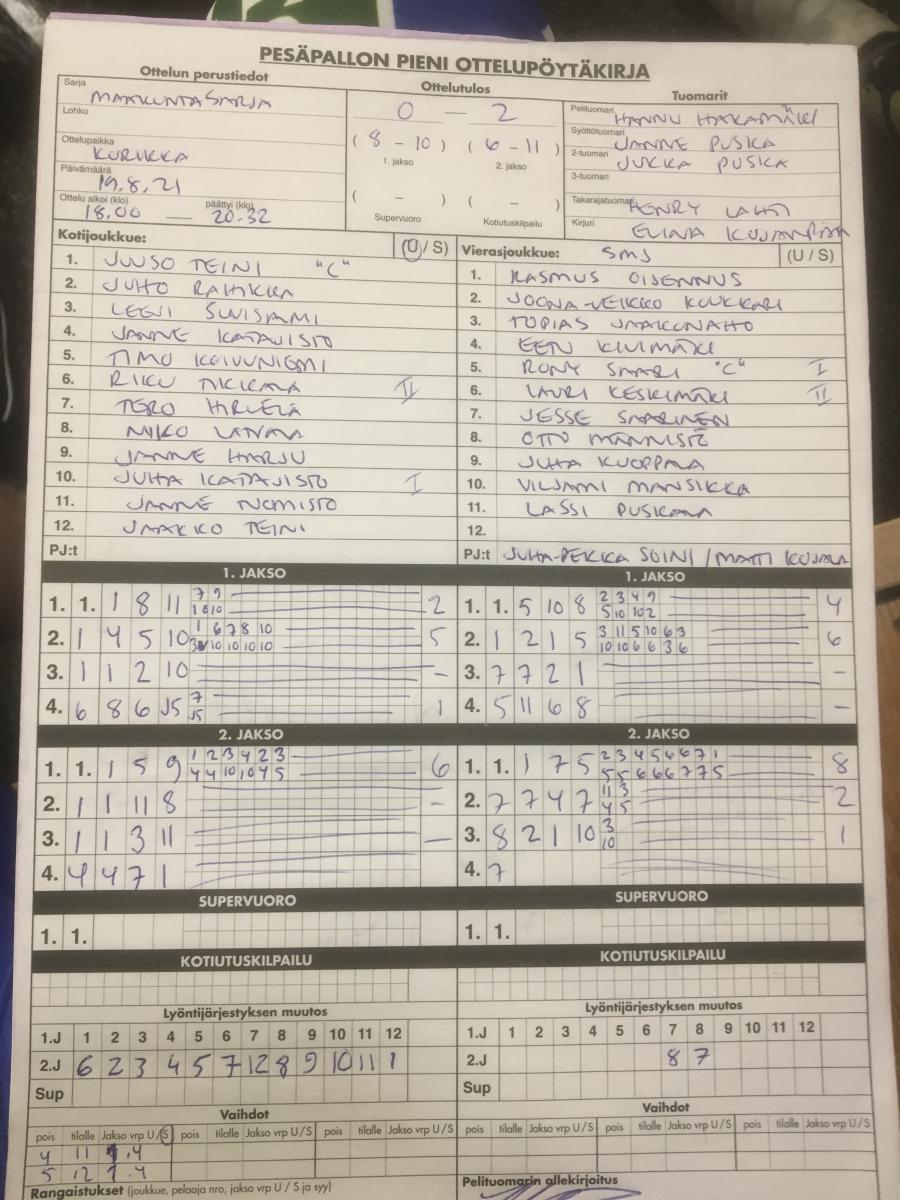 PESÄPALLON PIENI OTTELUPÖYTÄKIRJA
Ottelun perustiedot
Sarja MAAKUNTASARJA
Lohko
Ottelupaikka KURIKKA
Päivämäärä 19.8.21
Ottelu alkoi (klo) päättyi (klo)
18.00 — 20.32
Ottelutulos
0 — 2
( 8 - 10 ) ( 6 - 11 )
1. jakso 2. jakso
( - ) ( - )
Supervuoro Kotiutuskilpailu
Tuomarit
Pelituomari HANNU HAKAMÄKI
Syöttötuomari JANNE PUSKA
2-tuomari JUKKA PUSKA
3-tuomari
Takarajatuomari HENRY LAHTI
Kirjuri ELINA
Kotijoukkue: (U / S)
1. JUUSO TEINI "C"
2. JUHO RAHIKKA
3. LEEVI SUVISAMI
4. JANNE KATAJISTO
5. TIMO KOIVUNIEMI
6. RIKU II
7. TERO HIRVELÄ
8. NIKO
9. JANNE HARJU
10. JUHA KATAJISTO I
11. JANNE NOMISTO
12. JAAKKO TEINI
PJ:t
Vierasjoukkue: SMJ (U / S)
1. RASMUS OJENNUS
2. JOONA-VEIKKO KUUKKARI
3. TOPIAS JAAKONAHO
4. EEN KIVIMÄKI
5. RONY SAARI "C" I
6. LAURI KESKIMÄKI II
7. JESSE SAARINEN
8. OTTO MÄNNISTÖ
9. JUHA KUOPPALA
10. VILJAMI MANSIKKA
11. LASSI PUSKALA
12.
PJ:t JUHA-PEKKA SOINI / MATTI KUJALA
1. JAKSO
1. 1. 1 8 11 7 9 2
1 8 10
2. 1 4 5 10 1 6 7 8 10 5
10 10 10 10
3. 1 1 2 10 -
4. 6 8 6 J5 7 1
J5
1. JAKSO
1. 1. 5 10 8 2 3 4 9 4
5 10 10 2
2. 1 2 1 5 3 11 5 10 6 3 6
10 10 6 6 3 6
3. 7 7 2 1 -
4. 5 11 6 8 -
2. JAKSO
1. 1. 1 5 9 1 2 3 4 2 3 6
4 4 10 10 4 5
2. 1 1 11 8 -
3. 1 1 3 11 -
4. 4 4 7 1
2. JAKSO
1. 1. 1 7 5 2 3 4 5 6 6 7 1 8
5 5 6 6 6 7 7 5
2. 7 7 4 7 11 3 2
4 5
3. 8 2 1 10 3 1
10
4. 7
SUPERVUORO
1. 1.
SUPERVUORO
1. 1.
KOTIUTUSKILPAILU
KOTIUTUSKILPAILU
Lyöntijärjestyksen muutos
1.J 1 2 3 4 5 6 7 8 9 10 11 12
2.J 6 2 3 4 5 7 12 8 9 10 11 1
Sup
Lyöntijärjestyksen muutos
1.J 1 2 3 4 5 6 7 8 9 10 11 12
2.J 8 7
Sup
Vaihdot
pois tilalle Jakso vrp U / S pois tilalle Jakso vrp U / S pois tilalle Jakso vrp U / S
4 11 1.4
5 12 1.4
Vaihdot
pois tilalle Jakso vrp U / S pois tilalle Jakso vrp U / S pois tilalle Jakso vrp U / S
Rangaistukset (joukkue, pelaaja nro, jakso vrp U / S ja syy)
Pelituomarin allekirjoitus